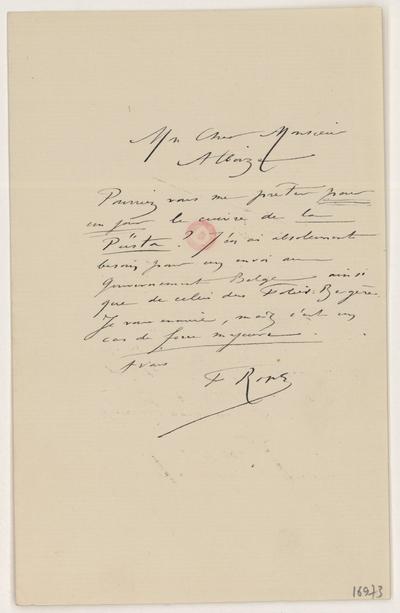 Mon Cher Monsieur
Alboize
Pourriez vous me prêter pour
un jour le cuivre de la
Püsta ? J'en ai absolument
besoin pour un envoi au
Gouvernement Belge ainsi
que de celui des Folies-Bergère.
Je vous ennuie, mais c'est un
cas de force majeure.
A vous
F Rops
16973